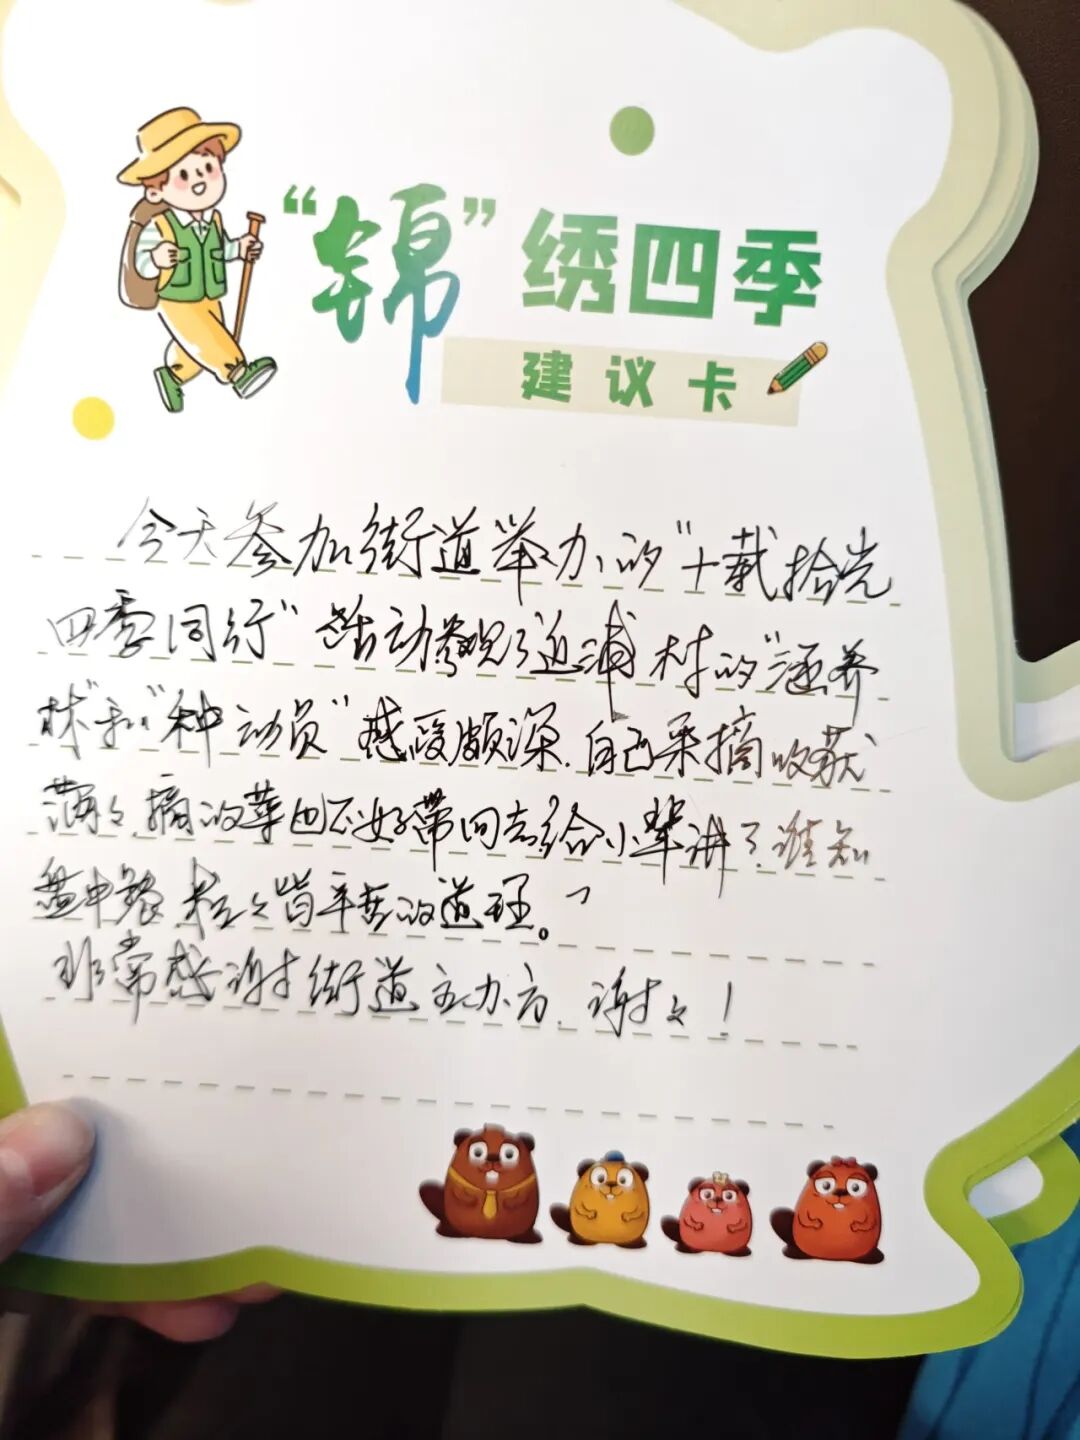 “锦”绣四季
建议卡
今天参加街道举办的“十载拾光
四季同行”活动参观了迫浦村的“涵养
林”和“种动员”感受颇深.自己采摘收获
满々.摘的菜也正好带回去给小辈讲了.谁知
盘中餐.粒々皆辛苦的道理。”
非常感谢街道主办方.谢々！